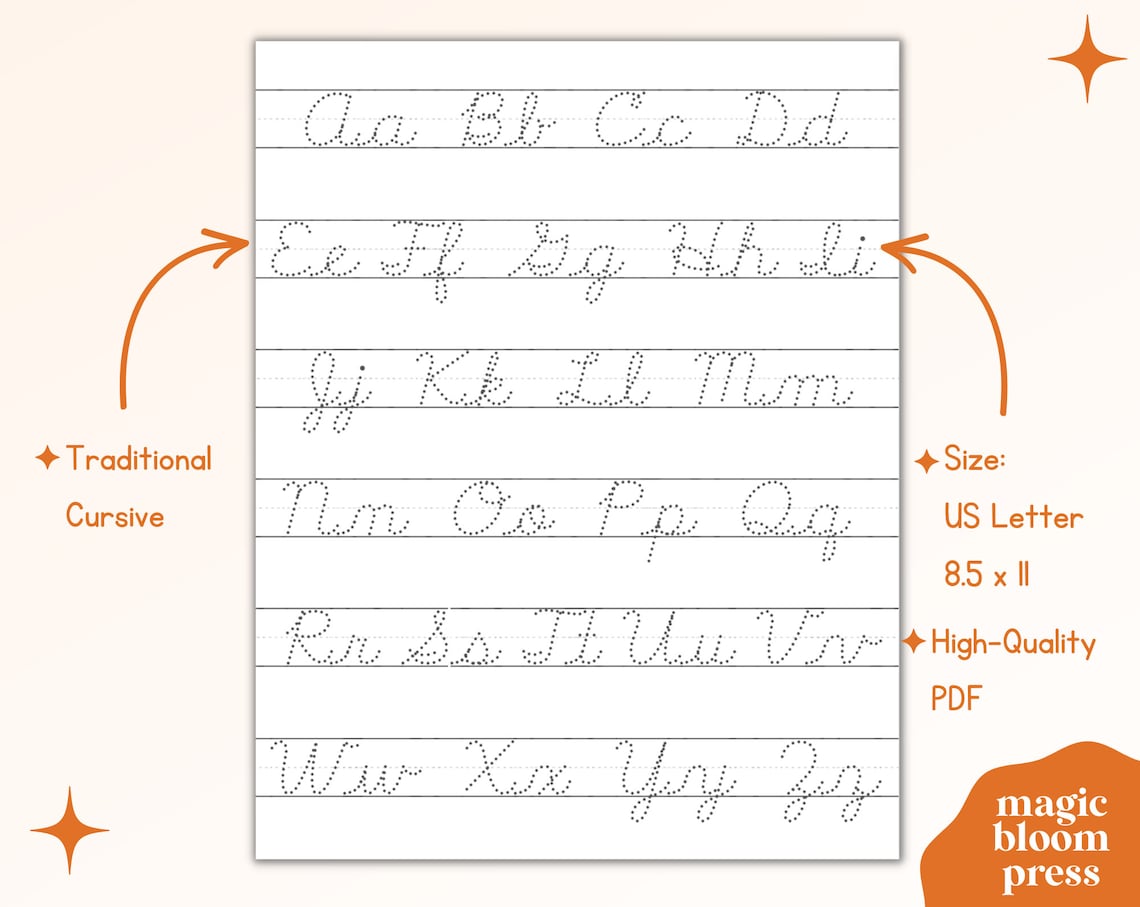 Aa Bb Cc Dd
Ee Ff Gg Hh Ii
Jj Kk Ll Mm
Nn Oo Pp Qq
Rr Ss Tt Uu Vv
Ww Xx Yy Zz
Traditional
Cursive
Size:
US Letter
8.5 x 11
High-Quality
PDF
magic
bloom
press